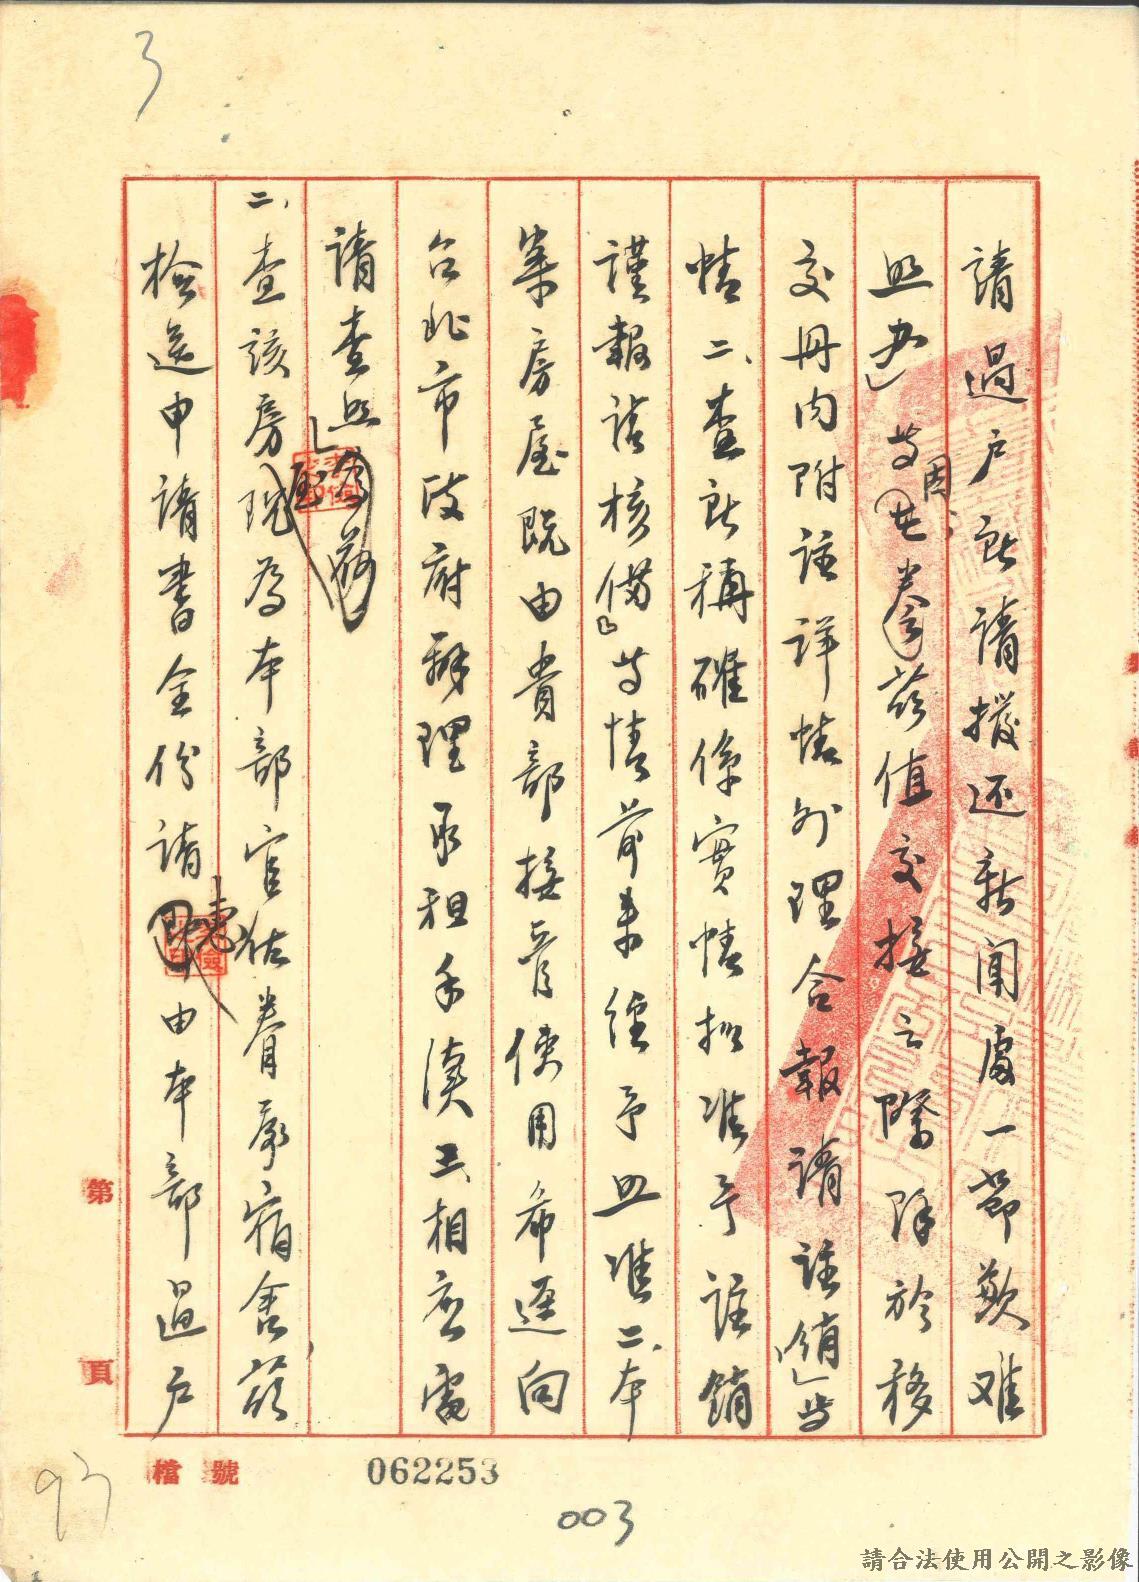 3
請過户所請撥还新聞處一節歉难
照办」等因。卷茲值交接之際除於移
交册内附註詳情外理合報請註銷」等
情二、查所稱確係實情擬准予註銷
謹報請核備」等情前来經予照准二、本
案房屋既由貴部接管使用希逕向
台北市政府辦理承租手續三、相應電
請查照」
二、查該房現為本部官佐眷序宿舍茲
檢送申請書全份請惠由本部過户
第 頁
檔號
062253
003
93
請合法使用公開之影像